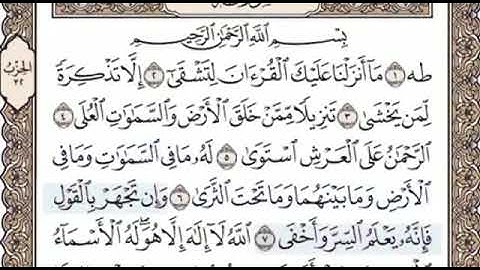 بِسْمِ اللَّهِ الرَّحْمَٰنِ الرَّحِيمِ
طه ١ مَا أَنزَلْنَا عَلَيْكَ الْقُرْءَانَ لِتَشْقَىٰ ٢ إِلَّا تَذْكِرَةً
لِّمَن يَخْشَىٰ ٣ تَنزِيلًا مِّمَّنْ خَلَقَ الْأَرْضَ وَالسَّمَٰوَٰتِ الْعُلَى ٤
الرَّحْمَٰنُ عَلَى الْعَرْشِ اسْتَوَىٰ ٥ لَهُۥ مَا فِي السَّمَٰوَٰتِ وَمَا فِي
الْأَرْضِ وَمَا بَيْنَهُمَا وَمَا تَحْتَ الثَّرَىٰ ٦ وَإِن تَجْهَرْ بِالْقَوْلِ
فَإِنَّهُۥ يَعْلَمُ السِّرَّ وَأَخْفَى ٧ اللَّهُ لَا إِلَٰهَ إِلَّا هُوَ ۖ لَهُ الْأَسْمَاءُ
الحزب
٣٢